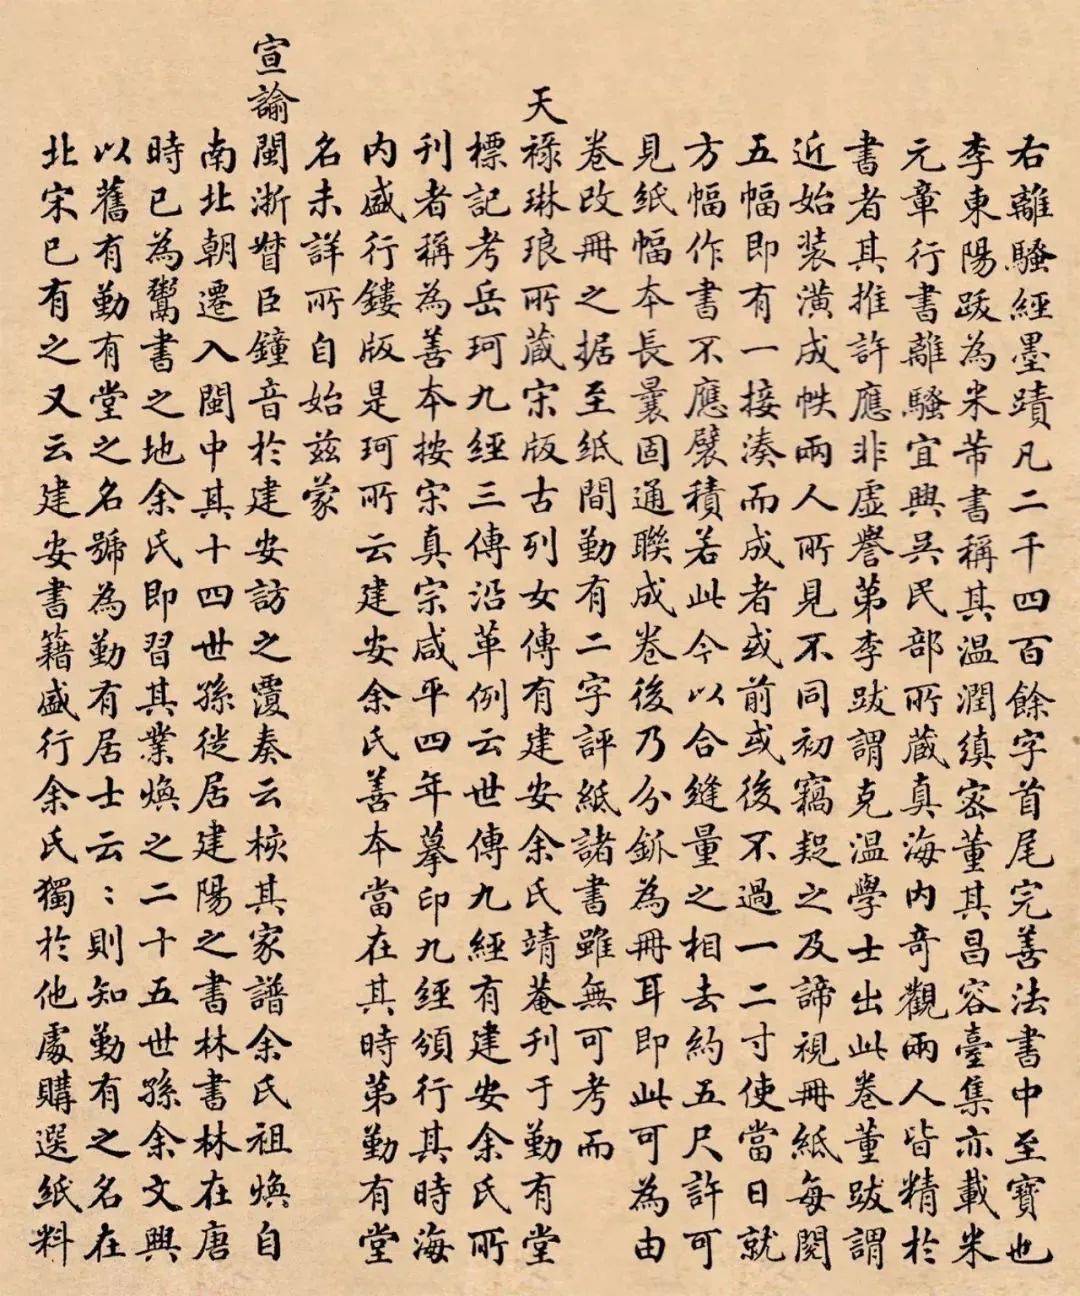 右離騷經墨蹟凡二千四百餘字首尾完善法書中至寶也
李東陽跋為米芾書稱其溫潤縝密董其昌容臺集亦載米
元章行書離騷宜興吳民部所藏真海內奇觀兩人皆精於
書者其推許應非虛譽第李跋謂克溫學士出此卷董跋謂
近始裝潢成帙兩人所見不同初竊疑之及諦視冊紙每閱
五幅即有一接湊而成者或前或後不過一二寸使當日就
方幅作書不應襞積若此今以合縫量之相去約五尺許可
見紙幅本長曩固通聯成卷後乃分鈲為冊耳即此可為由
卷改冊之据至紙間勤有二字評紙諸書雖無可考而
天祿琳琅所藏宋版古列女傳有建安余氏靖菴刊于勤有堂
標記考岳珂九經三傳沿革例云世傳九經有建安余氏所
刊者稱為善本按宋真宗咸平四年摹印九經頒行其時海
內盛行鏤版是珂所云建安余氏善本當在其時第勤有堂
名未詳所自始茲蒙
宣諭閩浙督臣鐘音於建安訪之覆奏云核其家譜余氏祖煥自
南北朝遷入閩中其十四世孫徙居建陽之書林書林在唐
時已為鬻書之地余氏即習其業煥之二十五世孫余文興
以舊有勤有堂之名號為勤有居士云：則知勤有之名在
北宋已有之又云建安書籍盛行余氏獨於他處購選紙料